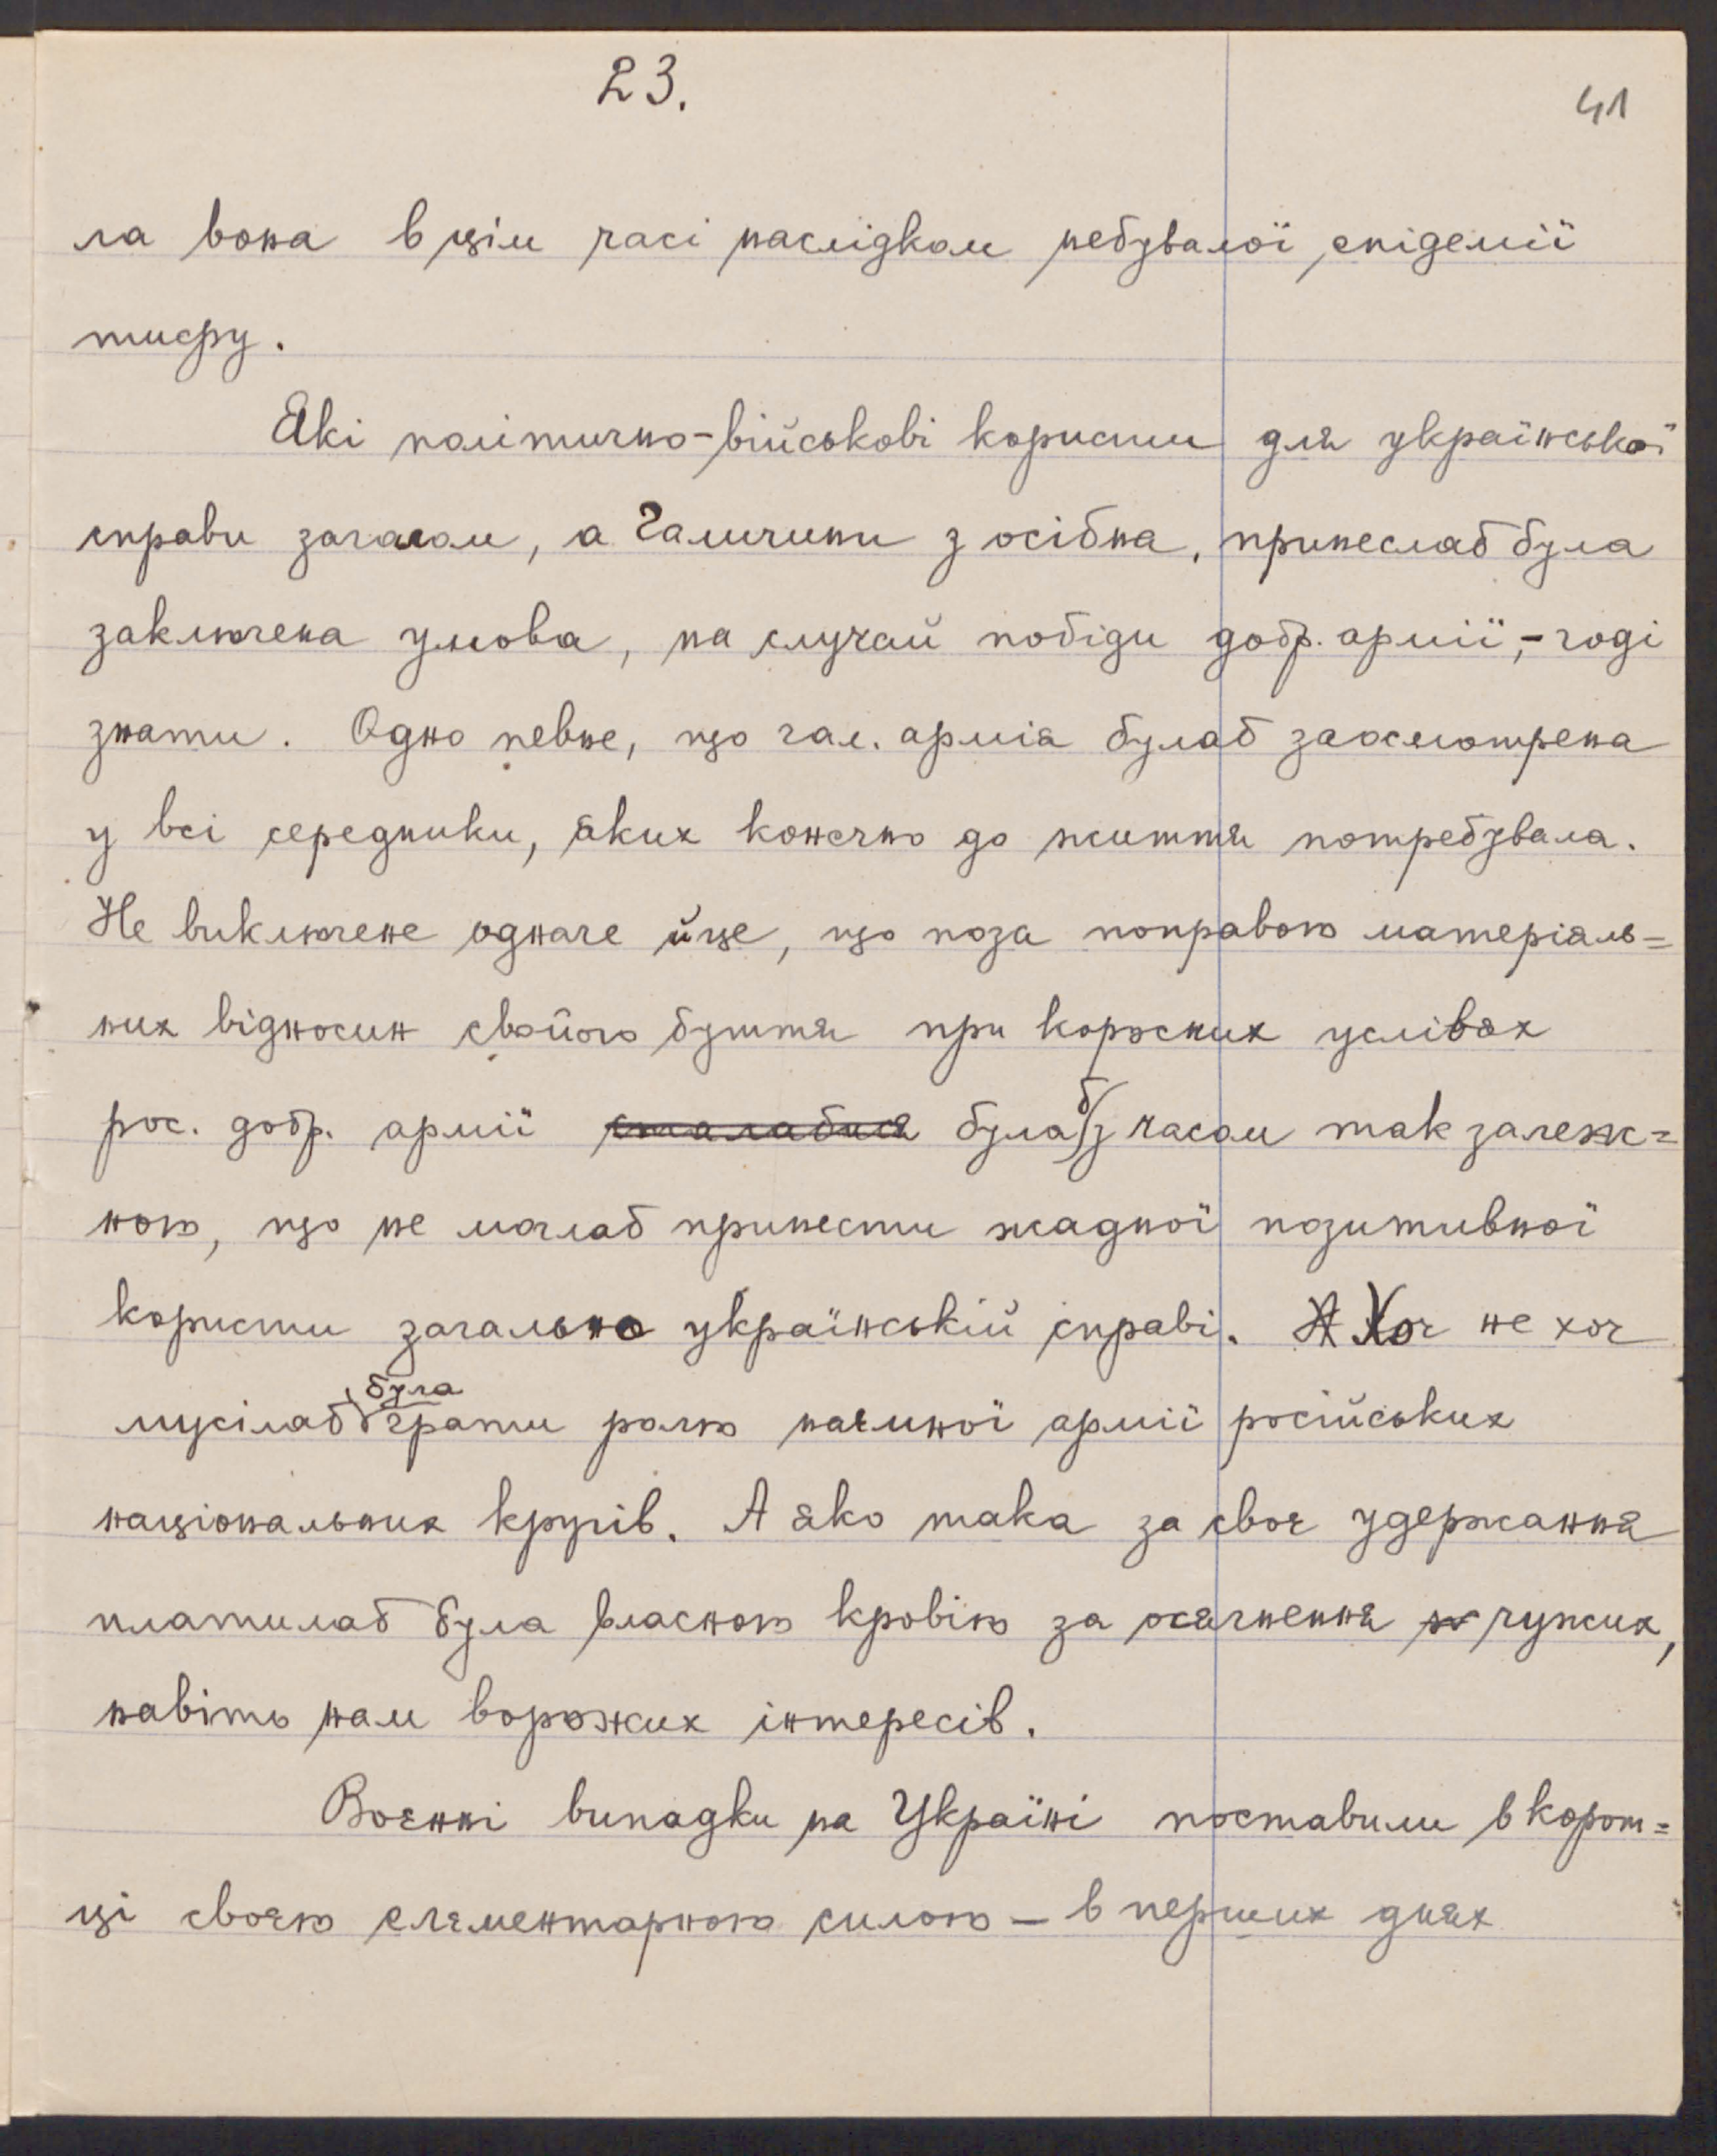 23.
41
ла вона в цім часі наслідком небувалої епідемії
тифу.
Які політично-військові користи для української
справи загалом, а Галичини з осібна, принеслаб була
заключена умова, на случай побіди добр. армії,- годі
знати. Одно певне, що гал. армія булаб заосмотрена
у всі середники, яких конечно до життя потребувала.
Не виключене одначе й це, що поза поправою матеріяль=
них відносин свойого буття при корисних условах
рос. добр. армії сталабися була б з часом так залеж=
ною, що не моглаб принести жадної позитивної
користи загально українській справі. А Хоч не хоч
мусілаб була грати ролю наємної армії російських
національних кругів. А яко така за своє удержання
платилаб була власною кровію за осягнення чужих,
навіть нам ворожих інтересів.
Воєнні випадки на Україні поставили в корот=
ці своєю елєментарною силою — в перших днях